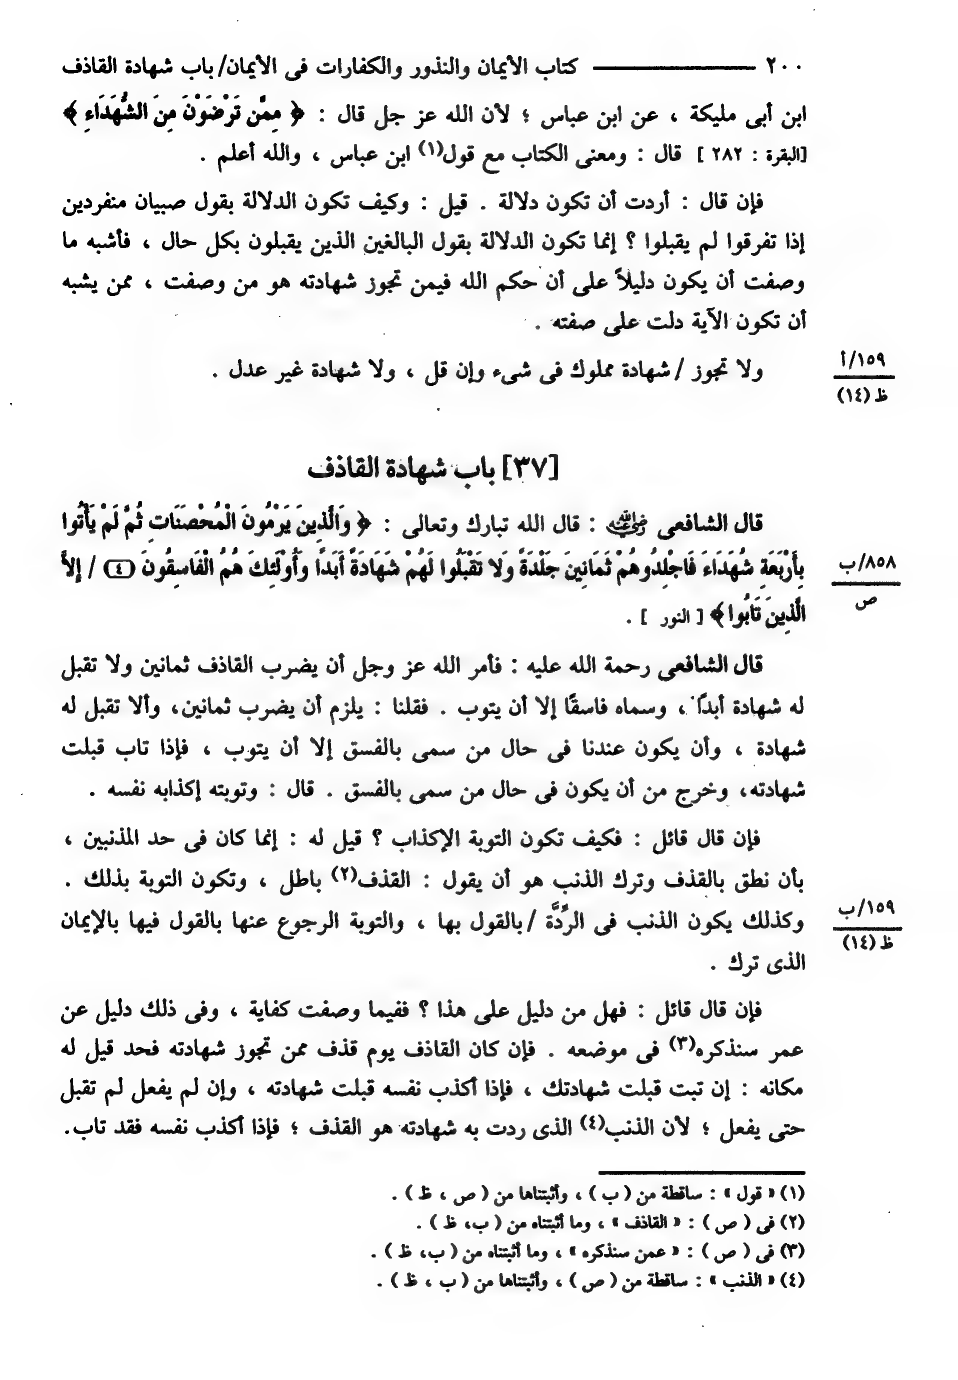 ٢٠٠ ——— كتاب الأيمان والنذور والكفارات فى الأيمان/ باب شهادة القاذف
ابن أبى مليكة ، عن ابن عباس ؛ لأن الله عز جل قال : ﴿ مِمَّن تَرْضَوْنَ مِنَ الشُّهَدَاءِ ﴾
[البقرة : ٢٨٢ ] قال : ومعنى الكتاب مع قول(١) ابن عباس ، والله أعلم .
فإن قال : أردت أن تكون دلالة . قيل : وكيف تكون الدلالة بقول صبيان منفردين
إذا تفرقوا لم يقبلوا ؟ إنما تكون الدلالة بقول البالغين الذين يقبلون بكل حال ، فأشبه ما
وصفت أن يكون دليلاً على أن حكم الله فيمن تجوز شهادته هو من وصفت ، ممن يشبه
أن تكون الآية دلت على صفته .
ولا تجوز / شهادة مملوك فى شىء وإن قل ، ولا شهادة غير عدل .
١٥٩/أ
ظ (١٤)
[٣٧] باب شهادة القاذف
قال الشافعى رَضِيَ اللهُ عَنْهُ : قال الله تبارك وتعالى : ﴿ وَالَّذِينَ يَرْمُونَ الْمُحْصَنَاتِ ثُمَّ لَمْ يَأْتُوا
بِأَرْبَعَةِ شُهَدَاءَ فَاجْلِدُوهُمْ ثَمَانِينَ جَلْدَةً وَلا تَقْبَلُوا لَهُمْ شَهَادَةً أَبَدًا وَأُوْلَئِكَ هُمُ الْفَاسِقُونَ (٤) / إِلاَّ
٨٥٨/ب
ص
الَّذِينَ تَابُوا ﴾ [ النور ] .
قال الشافعى رحمة الله عليه : فأمر الله عز وجل أن يضرب القاذف ثمانين ولا تقبل
له شهادة أبدًا ، وسماه فاسقًا إلا أن يتوب . فقلنا : يلزم أن يضرب ثمانين، وألا تقبل له
شهادة ، وأن يكون عندنا فى حال من سمى بالفسق إلا أن يتوب ، فإذا تاب قبلت
شهادته، وخرج من أن يكون فى حال من سمى بالفسق . قال : وتوبته إكذابه نفسه .
فإن قال قائل : فكيف تكون التوبة الإكذاب ؟ قيل له : إنما كان فى حد المذنبين ،
بأن نطق بالقذف وترك الذنب هو أن يقول : القذف(٢) باطل ، وتكون التوبة بذلك .
وكذلك يكون الذنب فى الرِّدَّة / بالقول بها ، والتوبة الرجوع عنها بالقول فيها بالإيمان
١٥٩/ب
ظ (١٤)
الذى ترك .
فإن قال قائل : فهل من دليل على هذا ؟ ففيما وصفت كفاية ، وفى ذلك دليل عن
عمر سنذكره(٣) فى موضعه . فإن كان القاذف يوم قذف ممن تجوز شهادته فحد قيل له
مكانه : إن تبت قبلت شهادتك ، فإذا أكذب نفسه قبلت شهادته ، وإن لم يفعل لم تقبل
حتى يفعل ؛ لأن الذنب(٤) الذى ردت به شهادته هو القذف ؛ فإذا أكذب نفسه فقد تاب.
(١) « قول » : ساقطة من ( ب ) ، وأثبتناها من ( ص ، ظ ) .
(٢) فى ( ص ) : « القاذف » ، وما أثبتناه من ( ب، ظ ) .
(٣) فى ( ص ) : « عمن سنذكره » ، وما أثبتناه من ( ب، ظ ) .
(٤) « الذنب » : ساقطة من ( ص ) ، وأثبتناها من ( ب ، ظ ) .